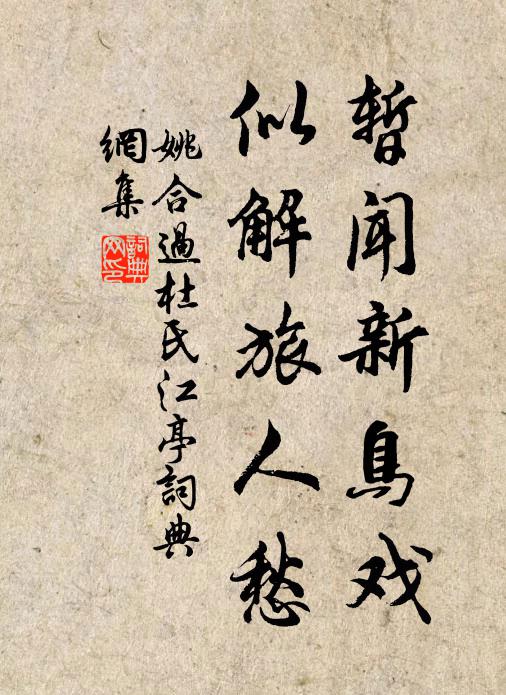 暫聞新鳥戏
似解旅人愁
姚合過杜氏江亭詞典
網集
詞典
网印